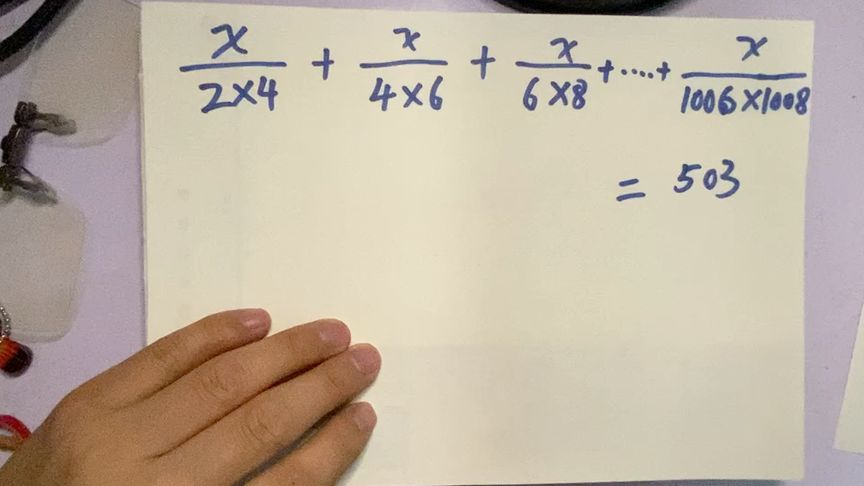 x/2×4 + x/4×6 + x/6×8 +....+ x/1006×1008
= 503